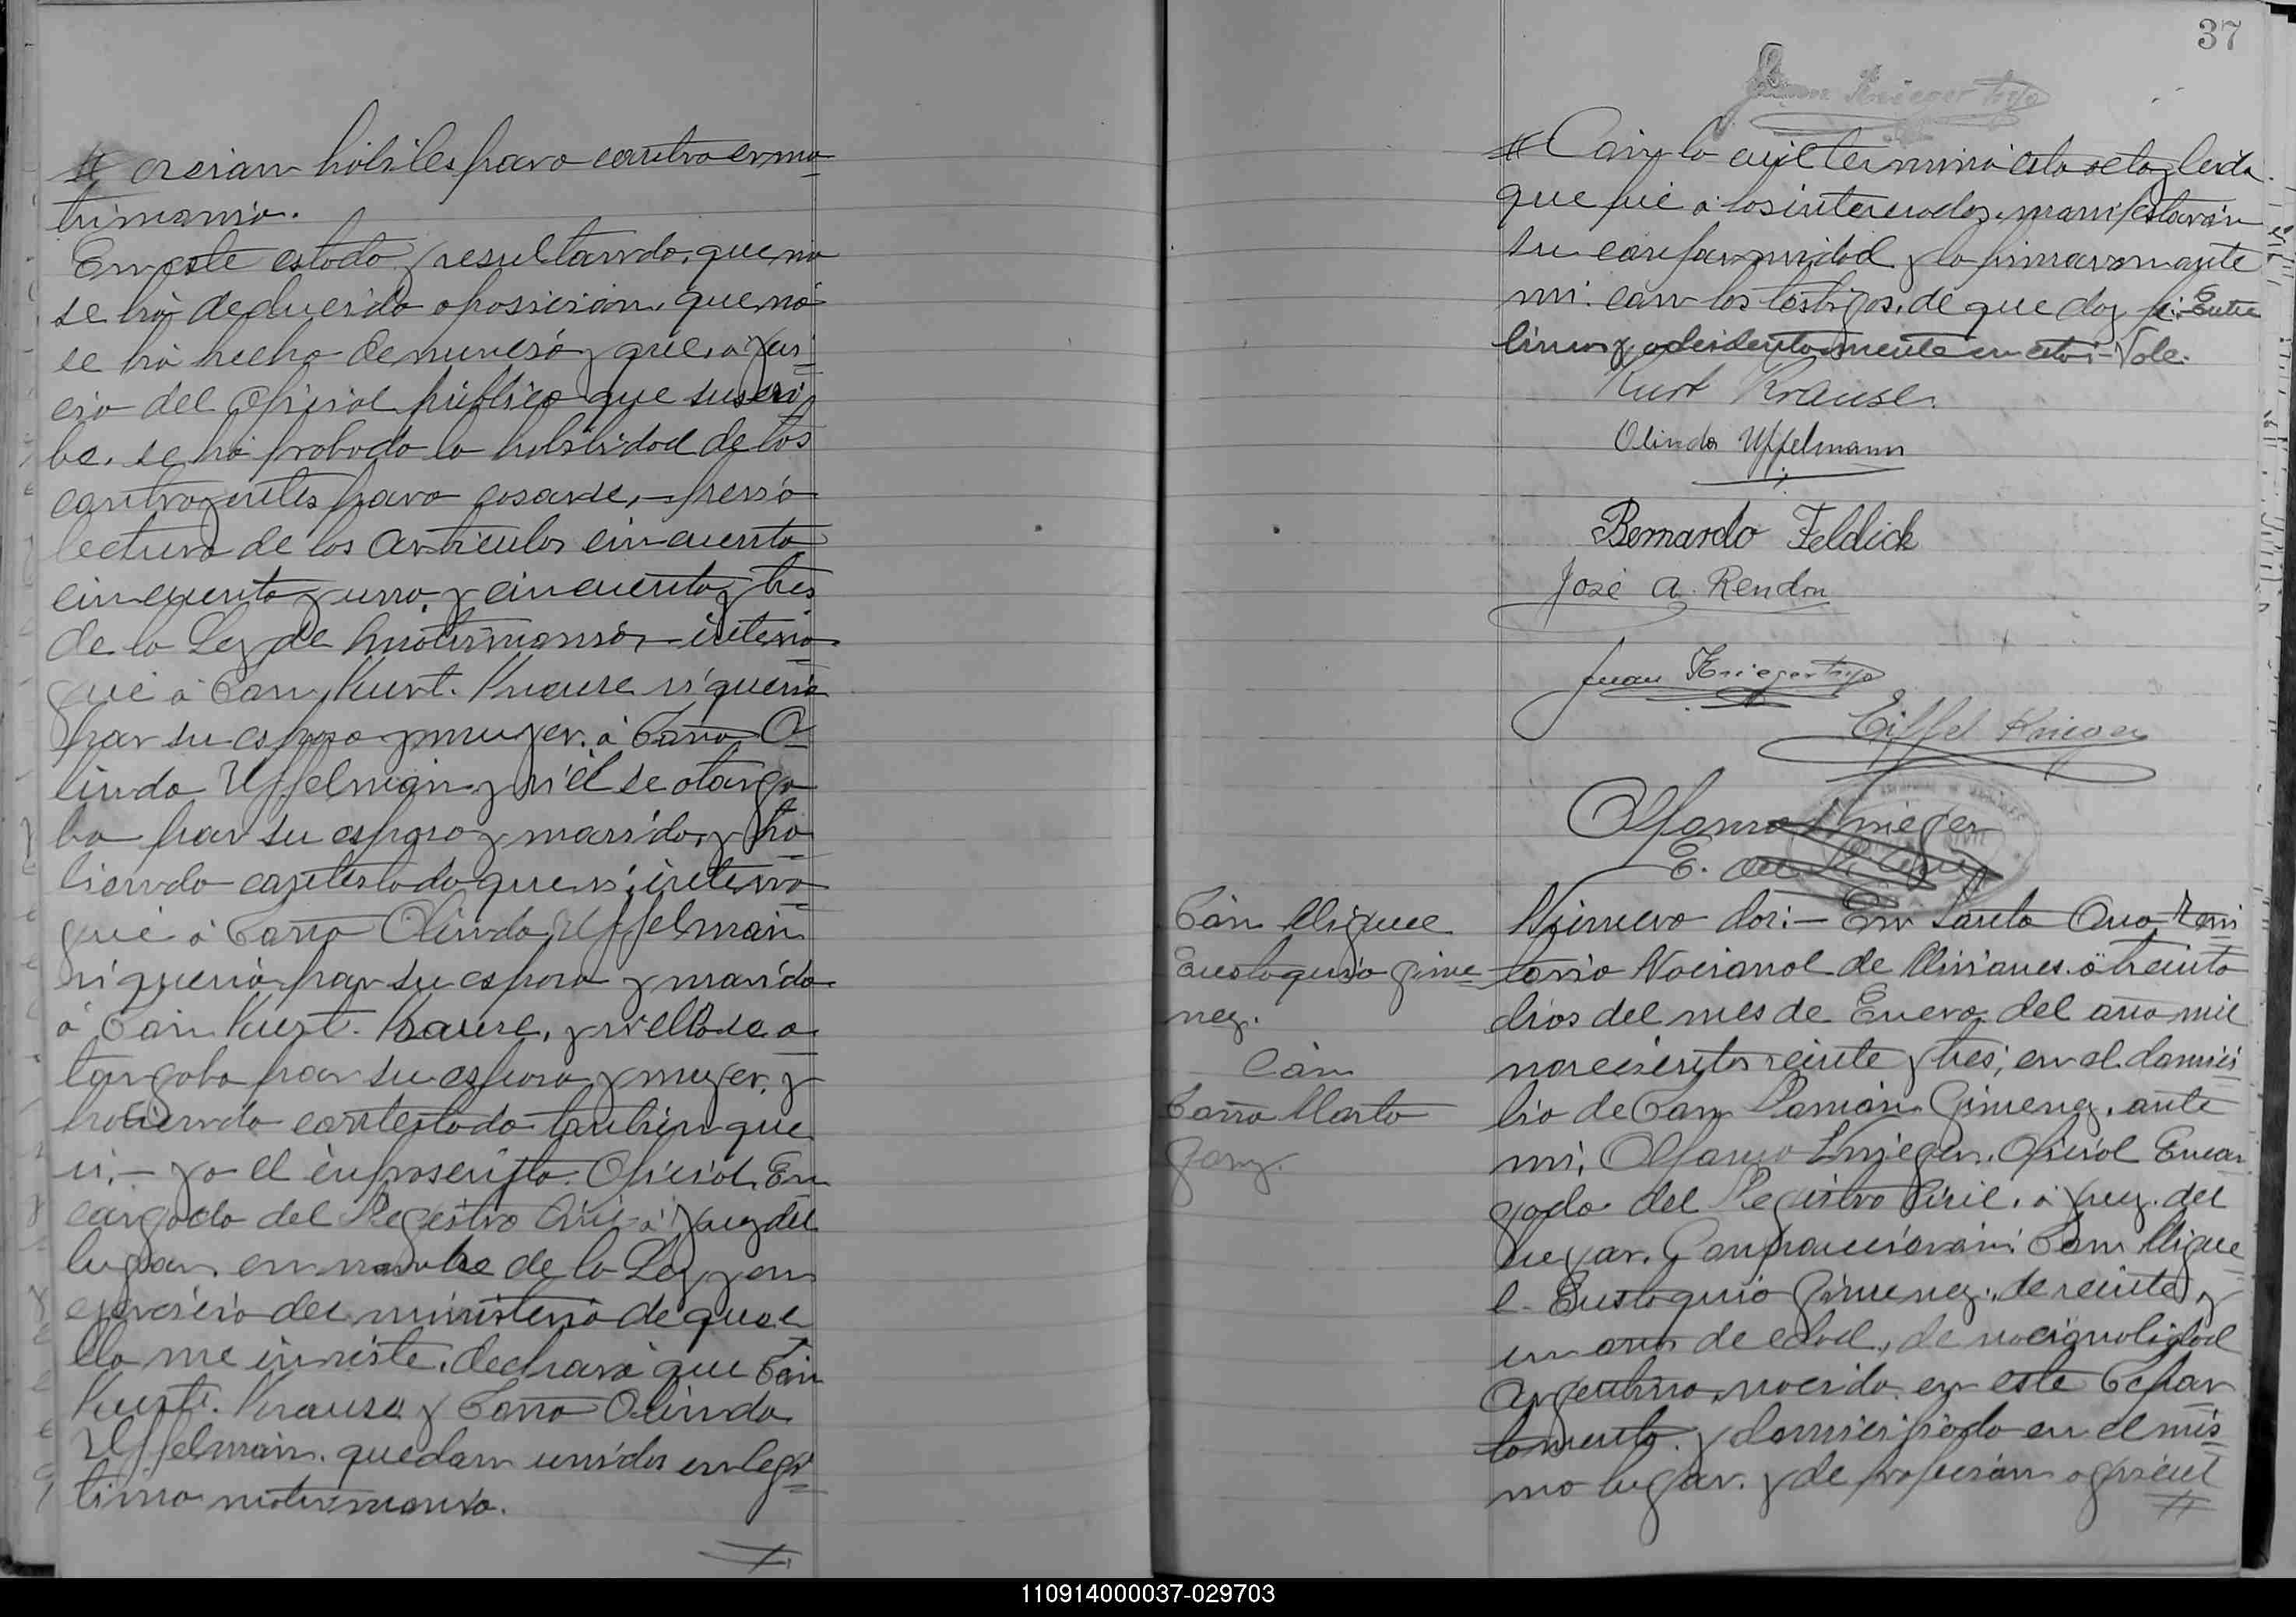 # creian hábiles para contraer ma-
trimonio.
En este estado y resultando, que no
se há deducido oposicion, que nó
se há hecho denuncia y que, a jui-
cio del oficial público que suscri-
be, se há probado la habilidad de los
contrayentes para casarse, - previa
lectura de los articulos cincuenta
cincuenta y uno, y cincuenta y tres
de la Ley de Matrimonio, - interro-
gué á Don Kurt. Krause si queria
por su esposa y mujer, á Doña O-
linda Uffelman y si él se otorga-
ba por su esposo y marido, y ha-
biendo contestado que si, interro-
gué á Doña Olinda Uffelman
si queria por su esposo y marido
á Don Kurt. Krause, y si ella se o-
torgaba por su esposa y mujer, y
habiendo contestado tambien que
si, - yo el infrascripto Oficial En
cargado del Registro Civil á Juez del
lugar, en nombre de la Ley y en
ejercicio del ministerio de que e-
lla me inviste, declaro que Don
Kurt. Krause y Doña Olinda
Uffelman, quedan unidos en legi-
timo matrimonio.
37
Juan Krieger hijo
# Con lo cual terminó esta acta y leida
que fué a los interesados, manifestaron
su conformidad y la firmaron ante
mi con los testigos, de que doy fé. - Entre
lineas y - Vale.
Kurt Krause.
Olinda Uffelmann
Bernardo Feldick
José A. Rendon
Juan Krieger hijo
Eiffel Krieger
Alfonso Krieger
Don Migue
Eustoquio Gime-
nez.
Con
Doña Marta
Número dos: - En Santa Ana, Terri
torio Nacional de Misiones, á treinta
dias del mes de Enero, del año mil
novecientos veinte y tres, en el domici
lio de Don Damian Gimenez, ante
mi, Alfonso Krieger, Oficial Encar
gado del Registro Civil, á Juez del
lugar, Comparecieron: Don Migue
l Eustoquio Gimenez, de veinte y
un años de edad, de nacionalidad
Argentino, nacido en este Depar
tamento, y domiciliado en el mis-
mo lugar, y de profesion agricul